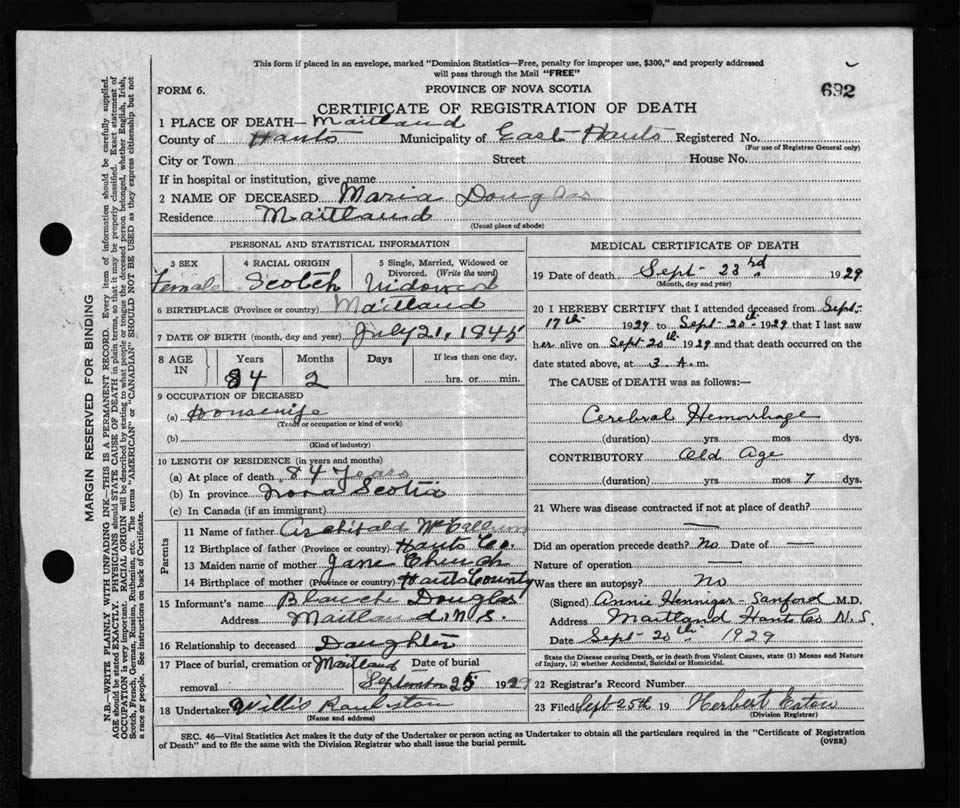 This form if placed in an envelope, marked "Dominion Statistics—Free, penalty for improper use, $300," and properly addressed
will pass through the Mail "FREE"
FORM 6.
PROVINCE OF NOVA SCOTIA
692
CERTIFICATE OF REGISTRATION OF DEATH
1 PLACE OF DEATH— Maitland
County of Hants Municipality of East Hants Registered No.
(For use of Registrar General only)
City or Town Street House No.
If in hospital or institution, give name
2 NAME OF DECEASED Maria Douglas
Residence Maitland
(Usual place of abode)
PERSONAL AND STATISTICAL INFORMATION
3 SEX 4 RACIAL ORIGIN 5 Single, Married, Widowed or
Divorced. (Write the word)
Female Scotch Widowed
6 BIRTHPLACE (Province or country) Maitland
7 DATE OF BIRTH (month, day and year) July 21, 1845
8 AGE IN Years Months Days If less than one day,
84 2 hrs. or min.
9 OCCUPATION OF DECEASED
(a) Housewife
(Trade or occupation or kind of work)
(b)
(Kind of industry)
10 LENGTH OF RESIDENCE (in years and months)
(a) At place of death 84 Years
(b) In province Nova Scotia
(c) In Canada (if an immigrant)
Parents
11 Name of father Archibald McCallum
12 Birthplace of father (Province or country) Hants Co.
13 Maiden name of mother Jane Church
14 Birthplace of mother (Province or country) Hants County
15 Informant's name Blanche Douglas
Address Maitland, N.S.
16 Relationship to deceased Daughter
17 Place of burial, cremation or Maitland Date of burial
removal September 25 1929
18 Undertaker Willis
(Name and address)
MEDICAL CERTIFICATE OF DEATH
19 Date of death Sept- 23rd, 1929
(Month, day and year)
20 I HEREBY CERTIFY that I attended deceased from Sept-
17th 1929 to Sept-20th 1929 that I last saw
her alive on Sept 20th 1929 and that death occurred on the
date stated above, at 3 A. m.
The CAUSE of DEATH was as follows:—
Cerebral Hemorrhage
(duration) yrs. mos. dys.
CONTRIBUTORY Old Age
(duration) yrs. mos. 7 dys.
21 Where was disease contracted if not at place of death?
Did an operation precede death? No Date of —
Nature of operation —
Was there an autopsy? No
(Signed) Annie Hennigar-Sanford M.D.
Address Maitland Hants Co N.S.
Date Sept-20th 1929
State the Disease causing Death, or in death from Violent Causes, state (1) Means and Nature
of Injury, (2) whether Accidental, Suicidal or Homicidal.
22 Registrar's Record Number
23 Filed Sept 25th 19 Herbert Eaton
(Division Registrar)
SEC. 46—Vital Statistics Act makes it the duty of the Undertaker or person acting as Undertaker to obtain all the particulars required in the "Certificate of Registration
of Death" and to file the same with the Division Registrar who shall issue the burial permit.
(OVER)
MARGIN RESERVED FOR BINDING
N.B.—WRITE PLAINLY WITH UNFADING INK—THIS IS A PERMANENT RECORD. Every item of information should be carefully supplied.
AGE should be stated EXACTLY. PHYSICIANS should STATE CAUSE OF DEATH in plain terms, so that it may be properly classified. Exact statement of
OCCUPATION is very important. RACIAL ORIGIN will be described by stating to what people or tongue the deceased person belonged, whether English, Irish,
Scotch, French, German, Russian, Ruthenian, etc. The terms "AMERICAN" or "CANADIAN" SHOULD NOT BE USED as they express citizenship but not
a race or people. See instructions on back of Certificate.